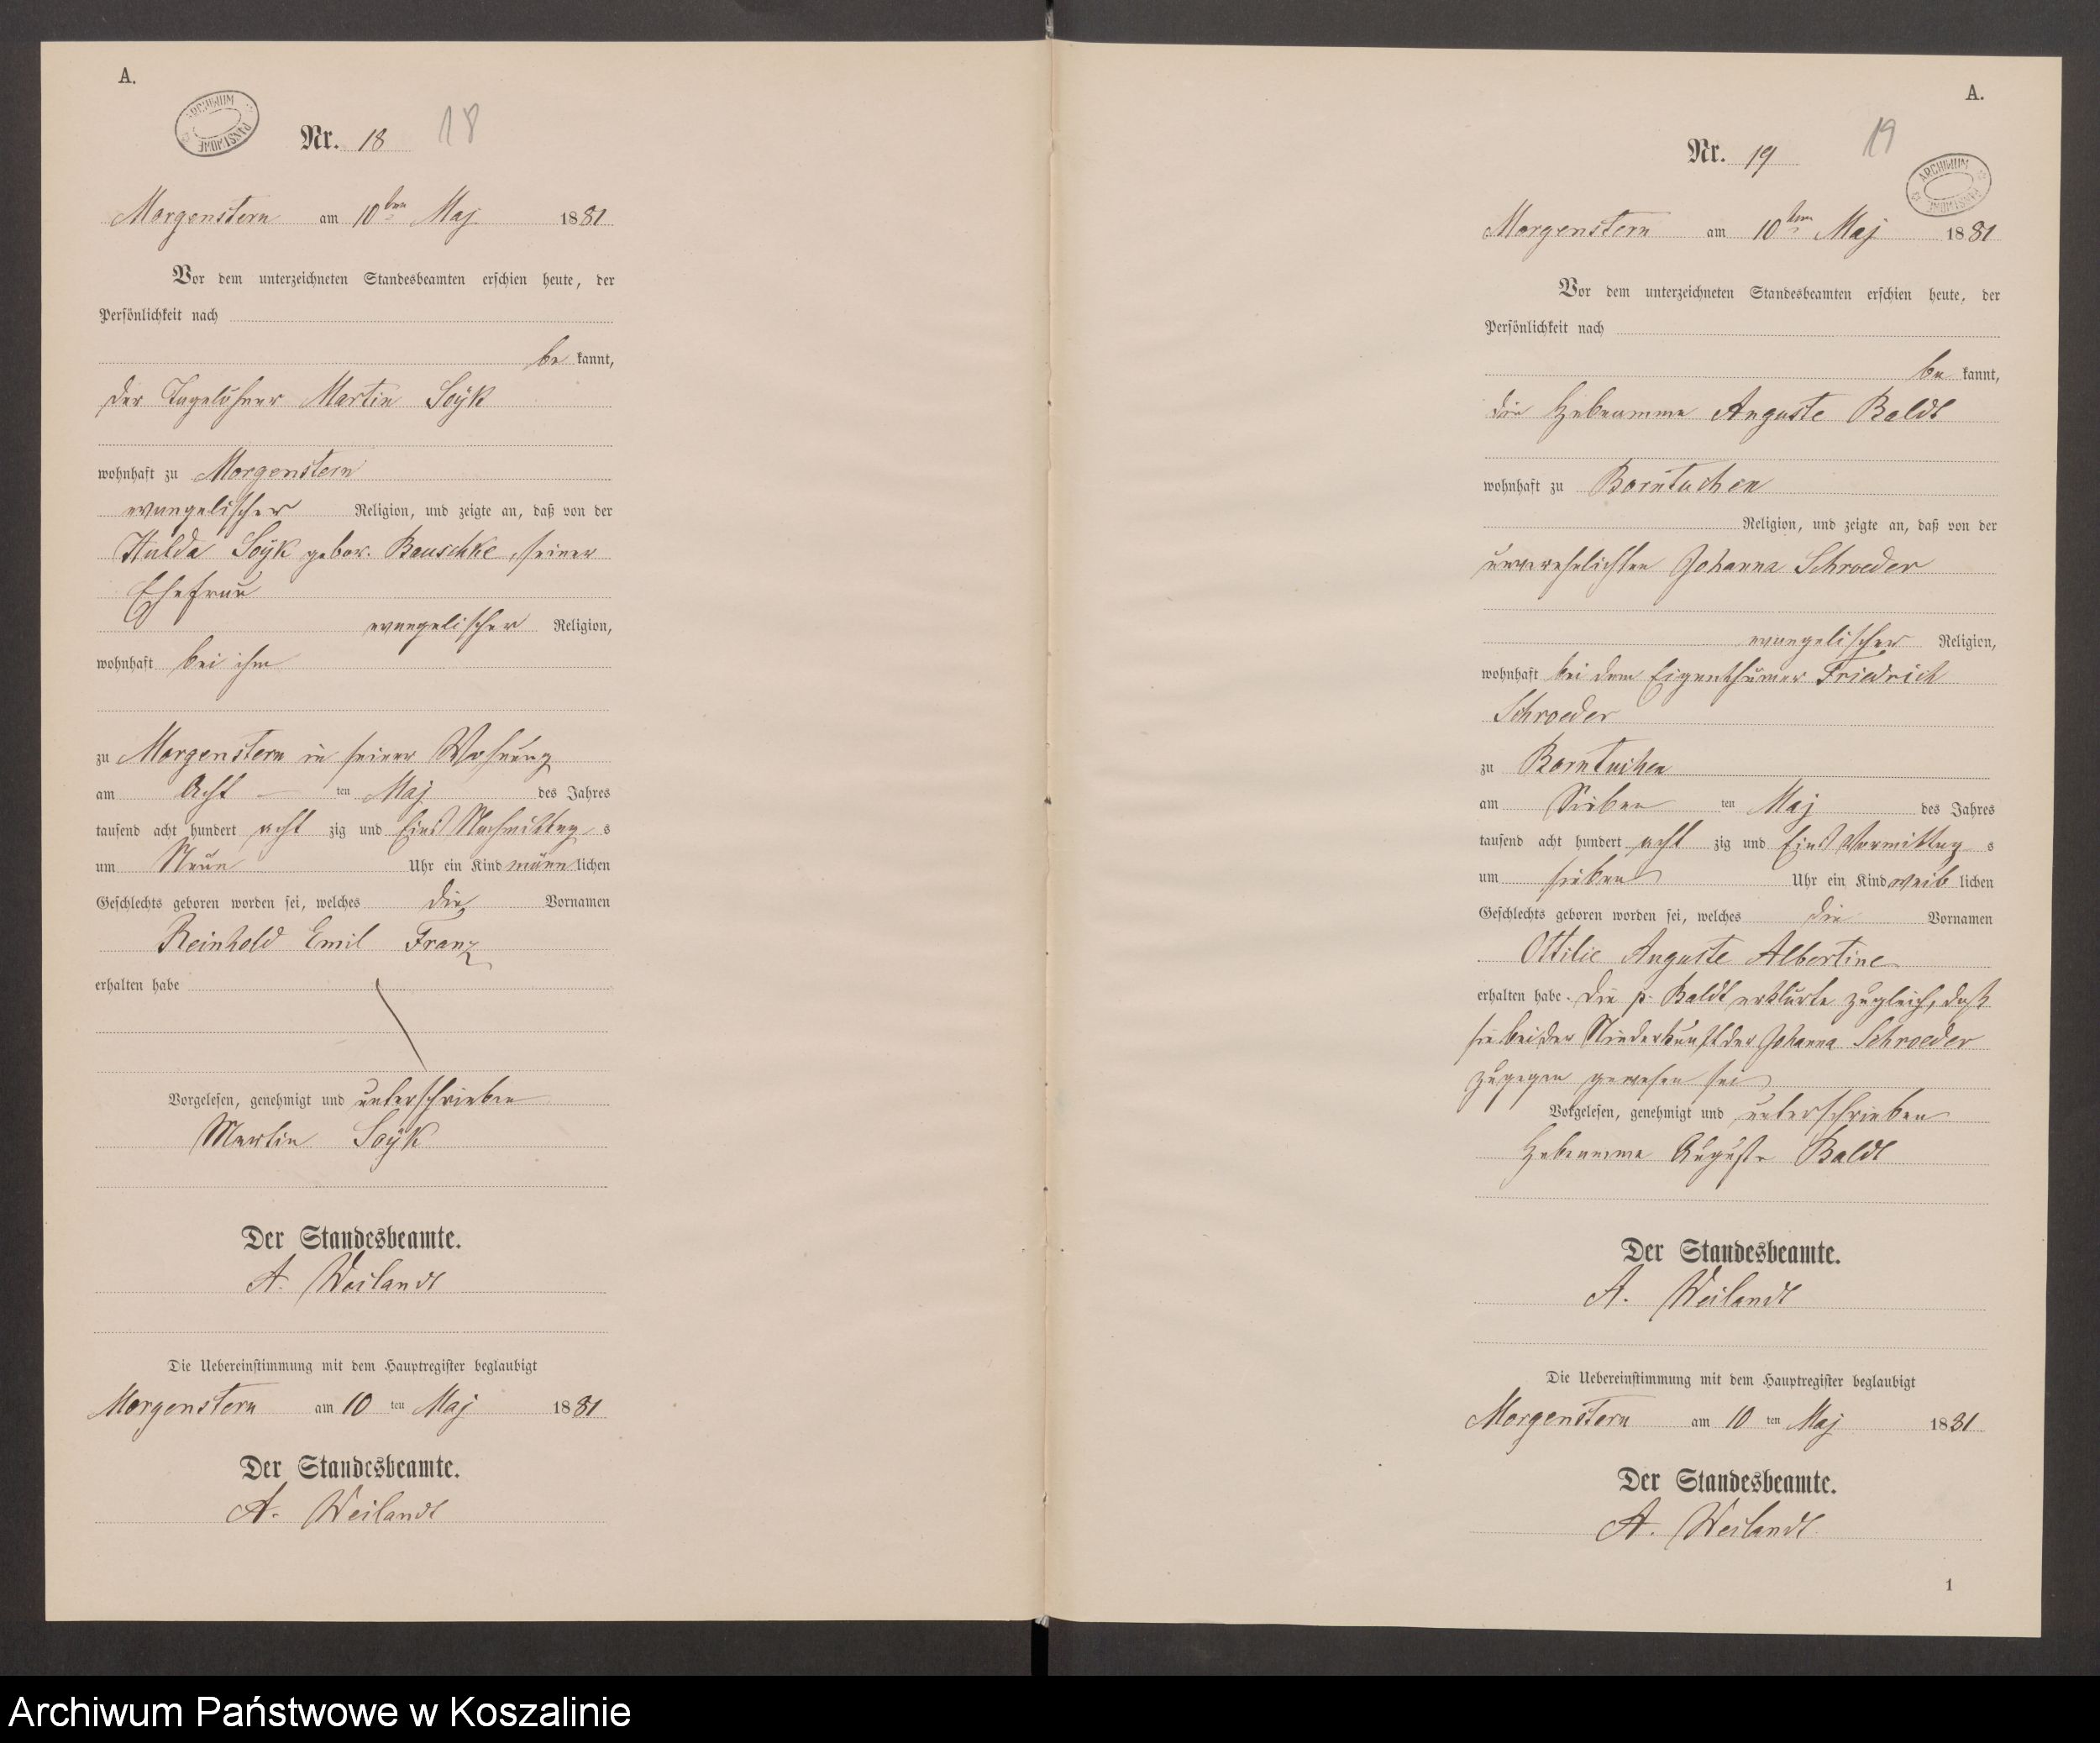 A.
ARCHIWUM PAŃSTWOWE
Nr. 18 18
Morgenstern am 10ten Maj 1881
Vor dem unterzeichneten Standesbeamten erschien heute, der
Persönlichkeit nach
be kannt,
der Tagelöhner Martin Soÿk
wohnhaft zu Morgenstern
evangelischer Religion, und zeigte an, daß von der
Hulda Soÿk gebor. Bauschke, seiner
Ehefrau
evangelischer Religion,
wohnhaft bei ihm
zu Morgenstern in seiner Wohnung
am Acht ten Maj des Jahres
tausend acht hundert acht zig und Eins Nachmittag s
um Neun Uhr ein Kind männ lichen
Geschlechts geboren worden sei, welches die Vornamen
Reinhold Emil Franz
erhalten habe
Vorgelesen, genehmigt und unterschrieben
Martin Soÿk
Der Standesbeamte.
A. Weilandt
Die Uebereinstimmung mit dem Hauptregister beglaubigt
Morgenstern am 10 ten Maj 1881
Der Standesbeamte.
A. Weilandt
A.
Nr. 19 19
ARCHIWUM PAŃSTWOWE
Morgenstern am 10ten Maj 1881
Vor dem unterzeichneten Standesbeamten erschien heute, der
Persönlichkeit nach
be kannt,
die Hebeamme Auguste Baldt
wohnhaft zu Borntuchen
Religion, und zeigte an, daß von der
unverehelichten Johanna Schroeder
evangelischer Religion,
wohnhaft bei dem Eigenthümer Friedrich
Schroeder
zu Borntuchen
am Sieben ten Maj des Jahres
tausend acht hundert acht zig und Eins Vormittag s
um sieben Uhr ein Kind weib lichen
Geschlechts geboren worden sei, welches die Vornamen
Ottilie Auguste Albertine
erhalten habe. Die p. Baldt erklärte zugleich, daß
sie bei der Niederkunft der Johanna Schroeder
zugegen gewesen sei
Vorgelesen, genehmigt und unterschrieben
Hebeamme Auguste Baldt
Der Standesbeamte.
A. Weilandt
Die Uebereinstimmung mit dem Hauptregister beglaubigt
Morgenstern am 10 ten Maj 1881
Der Standesbeamte.
A. Weilandt
1
Archiwum Państwowe w Koszalinie